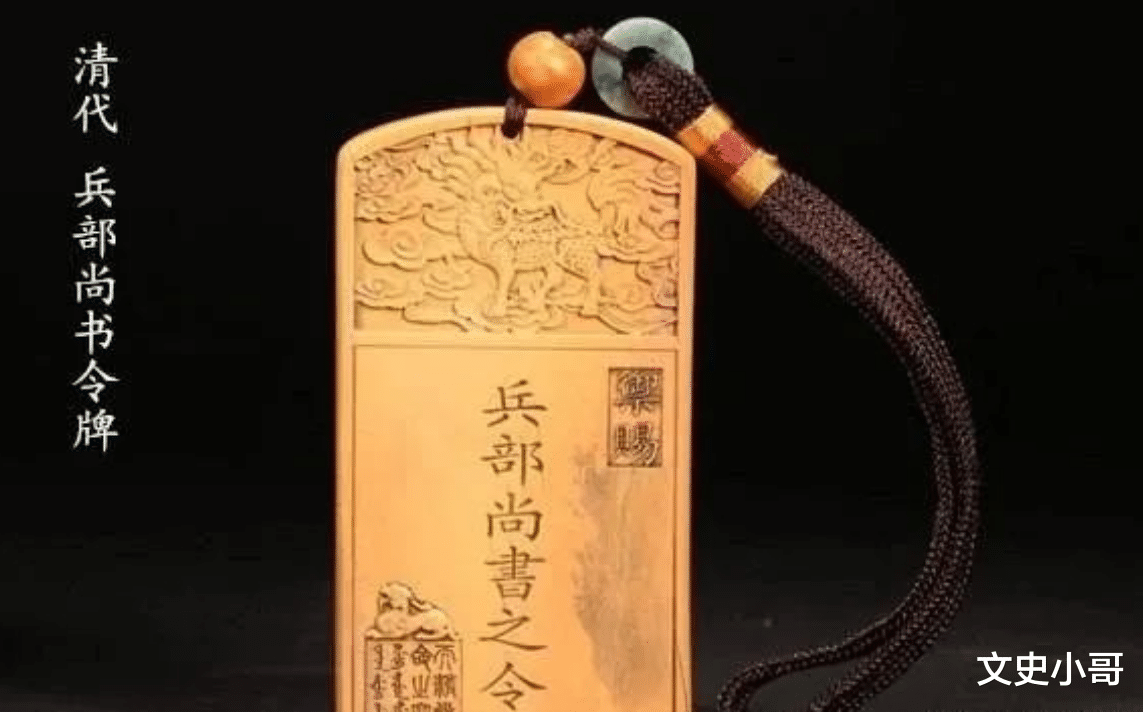 清代 兵部尚书令牌
御賜
兵部尚書之令
文史小哥